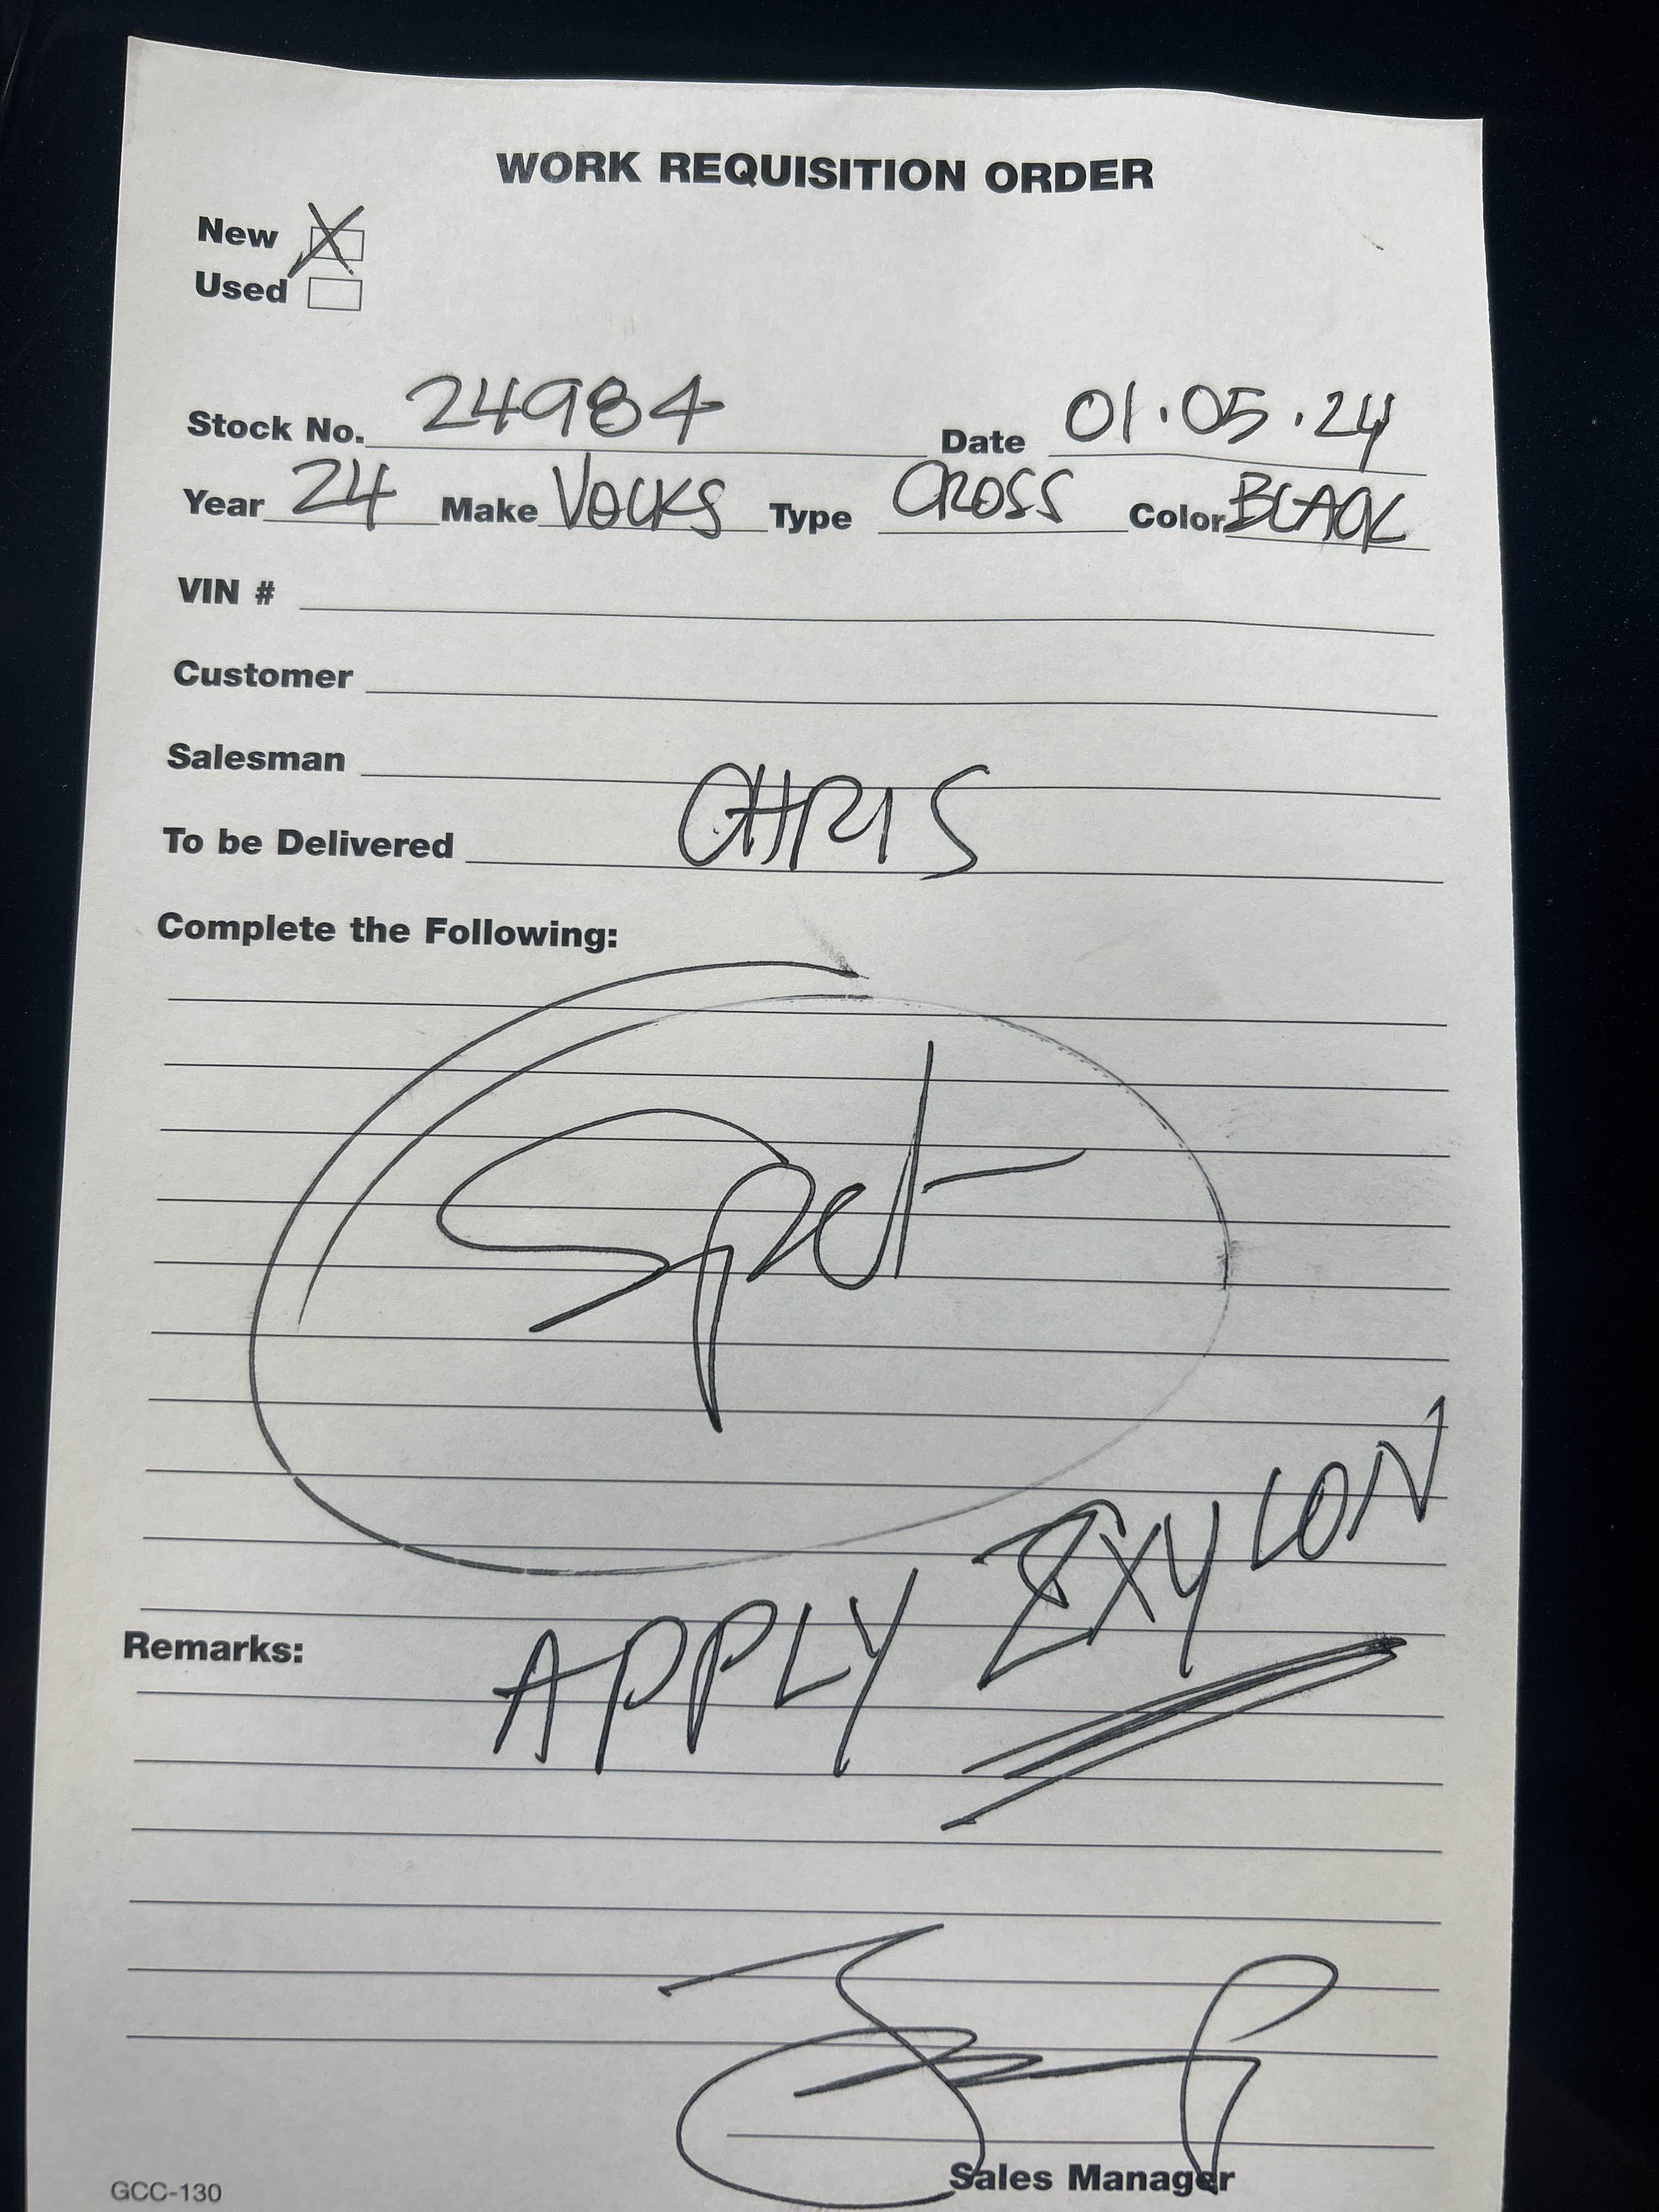 WORK REQUISITION ORDER
New X
Used
Stock No. 24984 Date 01.05.24
Year 24 Make VOLKS Type CROSS Color BLACK
VIN #
Customer
Salesman
To be Delivered CHRIS
Complete the Following:
Spot
APPLY EXYLON
Remarks:
Sales Manager
GCC-130